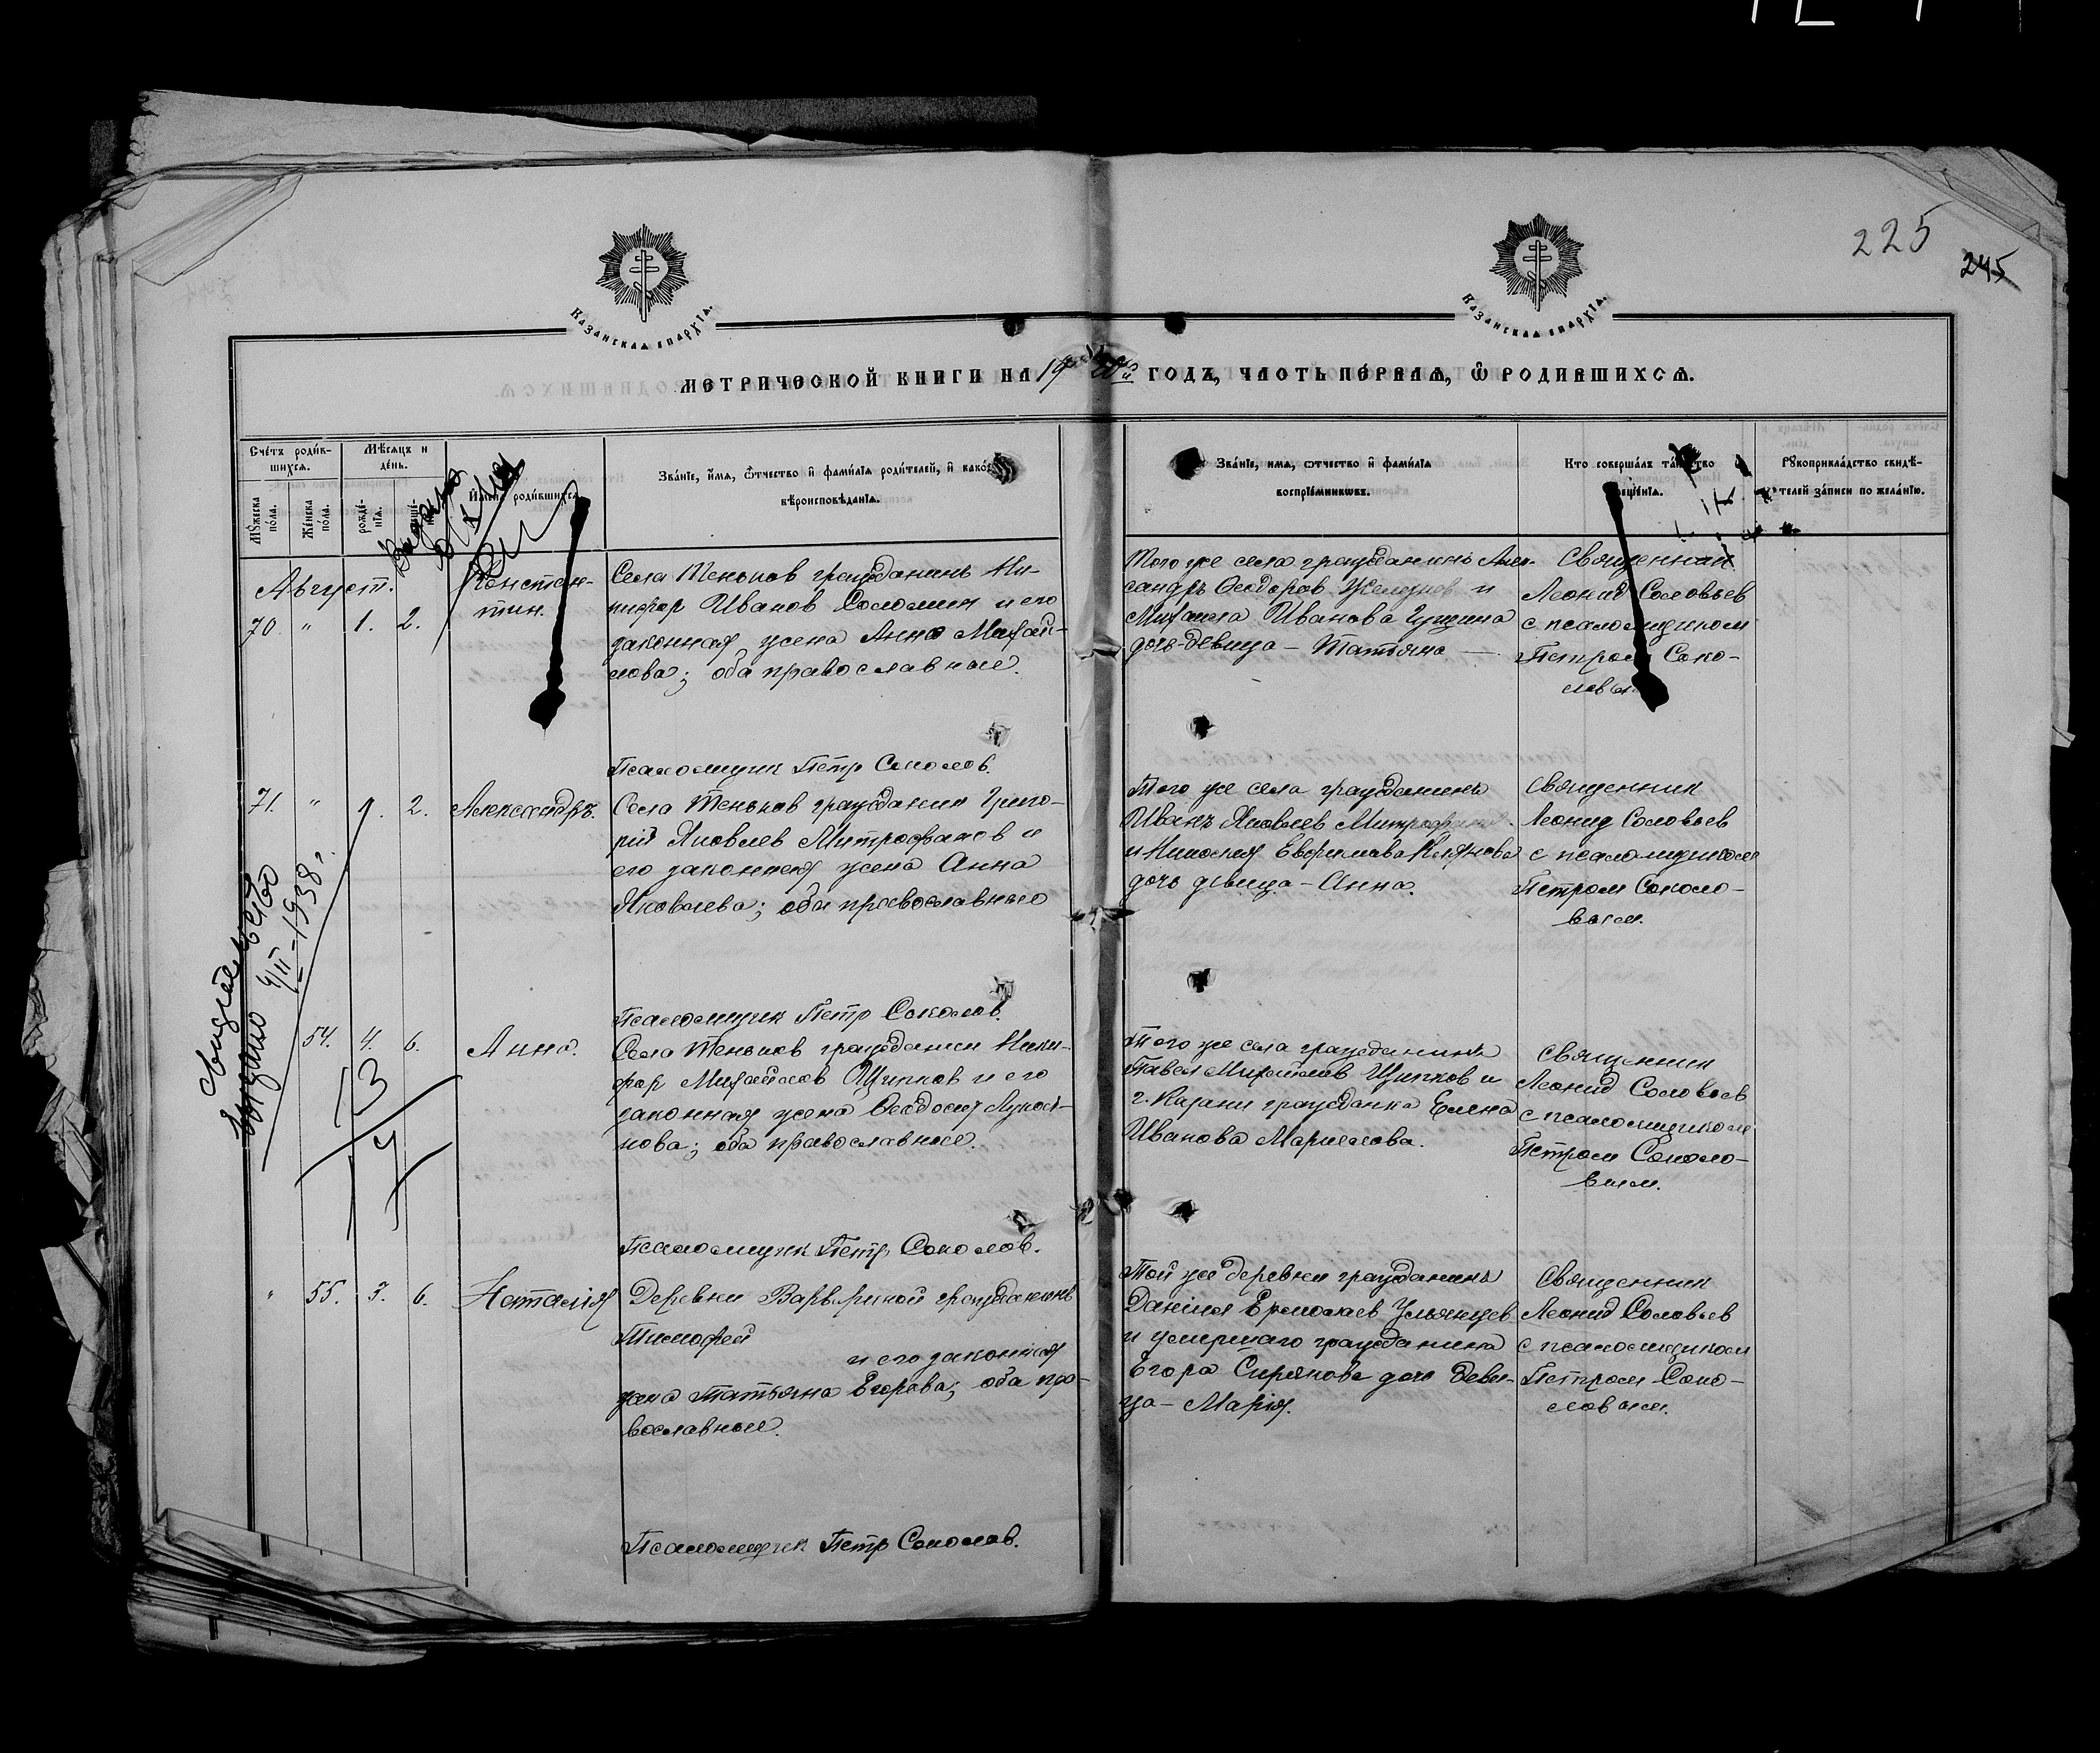 225
245
КАЗАНСКАѦ ЕПАРХІѦ.
КАЗАНСКАѦ ЕПАРХІѦ.
МЕТРИЧЕСКОЙ КНИГИ НА 19 20й ГОДЪ, ЧАСТЬ ПЕ́РВАѦ, Ѿ РОДИВШИХСѦ.
Сче́тъ роди́в-
шихсѧ.
Мѣ́сѧцъ и
де́нь.
Мꙋ́жеска
по́ла.
Же́нска
по́ла.
рожде́-
нїѧ.
роди́вшихсѧ
Зва́нїе, и҆́мѧ, ѻ҆́тчество и҆ фами́лїѧ роди́телей, и҆ како́гѡ
вѣроисповѣ́данїѧ.
Зва́нїе, имѧ, ѻтчество и҆ фами́лїѧ
воспрїе́мникѡвъ.
Кто соверша́лъ та́инство
креще́нїѧ.
Рꙋкоприкла́дство свидѣ́-
телей за́писи по жела́нїю.
Август.
70. " 1. 2.
Констан-
тин.
Села Теньков гражданинъ Ни-
кифор Иванов Соломин и его
законная жена Анна Михай-
лова; оба православные.
Псаломщик Петр Соколов.
Того же села гражданинъ Алек-
сандръ Ѳеодоров Железнов и
Михаила Иванова Гущина
дочь-девица – Татьяна
Священник
Леонид Соловьев
с псаломщиком
Петром Соко-
ловым
71. " 1. 2.
Александръ.
Села Теньков гражданин Григо-
рій Яковлев Митрофанов и
его законная жена Анна
Яковлева; оба православные
Псаломщик Петр Соколов.
Того же села гражданинъ
Иванъ Яковлев Митрофанов
и Николая Евфимова
дочь девица – Анна.
Священник
Леонид Соловьев
с псаломщиком
Петром Соколо-
вым.
Свидѣтельство
выдано 4/II-1938 г.
54. 4. 6.
Анна.
Села Теньков гражданин Ники-
фор Михайлов Щипков и его
законная жена Ѳеодосия Лукоя-
нова; оба православные.
Псаломщик Петр Соколов.
Того же села гражданинъ
Павел Михайлов Щипков и
г. Казани гражданка Елена
Иванова Маршалова.
Священник
Леонид Соловьев
с псаломщиком
Петром Соколо-
вым.
" 55. 3. 6.
Наталія
Деревни Варвариной гражданинъ
Тимофей
и его законная
жена Татьяна Егорова; оба пра-
вославные.
Псаломщик Петр Соколов.
Той же деревни гражданинъ
Даніил Ермолаев Ульянцев
и умершаго гражданина
Егора Сирякова дочь деви-
ца – Марія.
Священник
Леонид Соловьев
с псаломщиком
Петром Соко-
ловым.